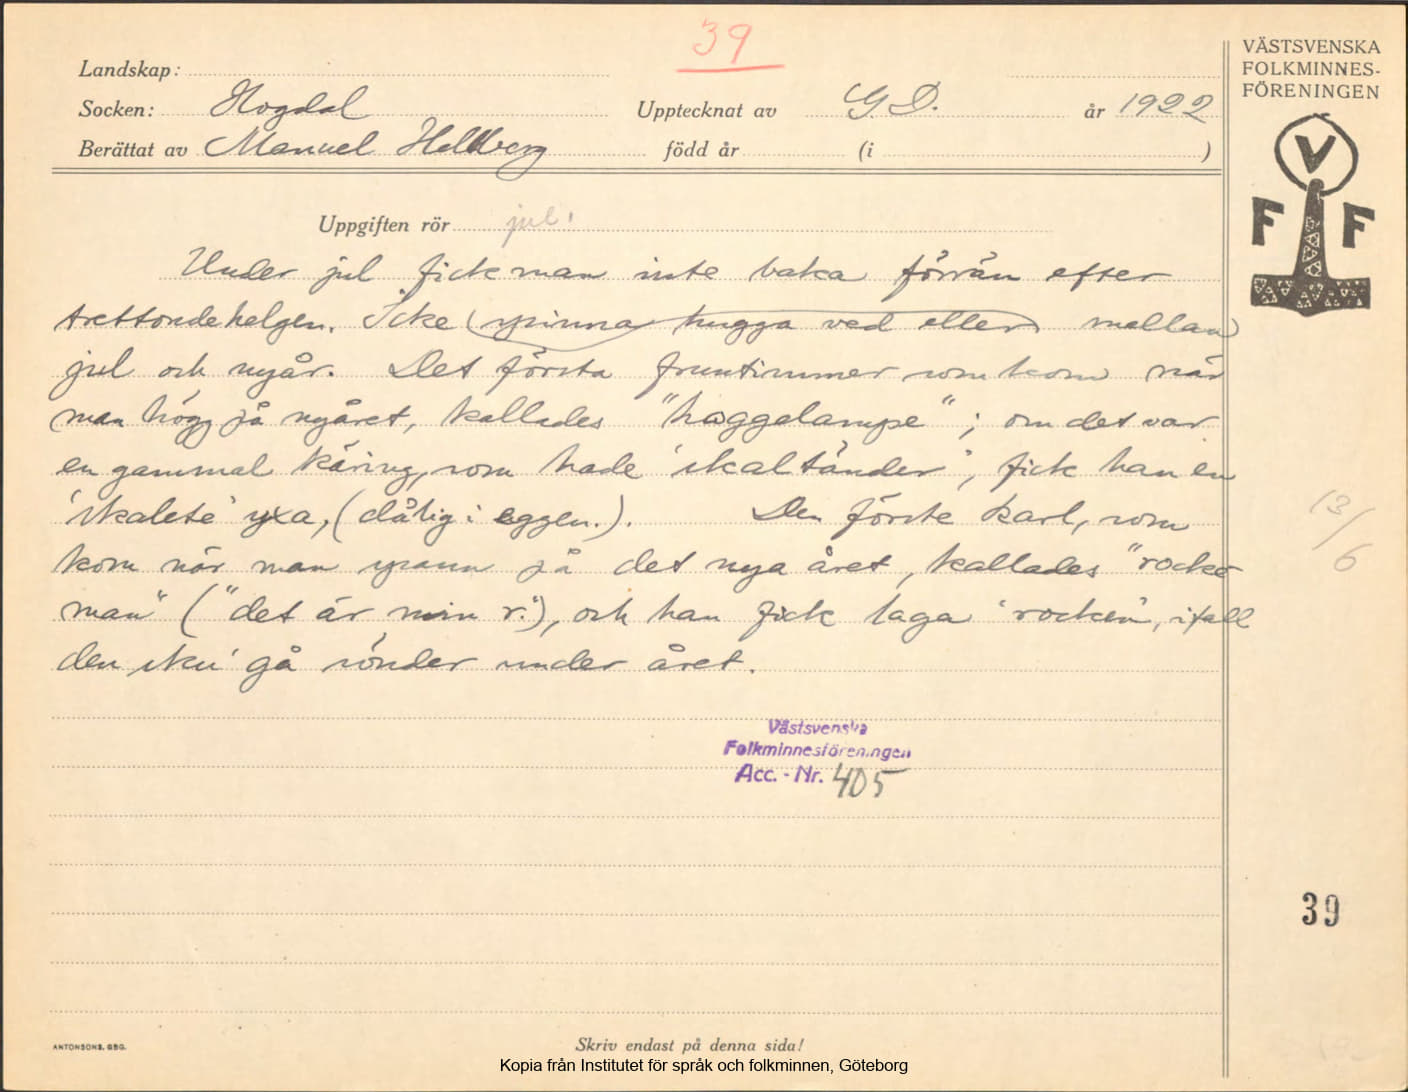 39
VÄSTSVENSKA
FOLKMINNES-
FÖRENINGEN
Landskap:
Socken: Hogdal Upptecknat av G. D. år 1922
Berättat av Manuel Hellberg född år (i )
V
F F
Uppgiften rör jul.
Under jul fick man inte baka förrän efter
trettondehelgen. Icke (spinna hugga ved eller) mellan
jul och nyår. Det första fruntimmer som kom när
man högg på nyåret, kallades "haggelampe"; om det var
en gammal käring, som hade 'skaltänder', fick han en
'skalete' yxa, (dålig i eggen.). Den förste karl, som
kom när man spann på det nya året, kallades "rocke
man" ("det är min r."), och han fick laga 'rocken', ifall
den sku' gå sönder under året.
13/6
Västsvenska
Folkminnesföreningen
Acc. - Nr. 405
39
ANTONSONS, GBG.
Skriv endast på denna sida!
Kopia från Institutet för språk och folkminnen, Göteborg